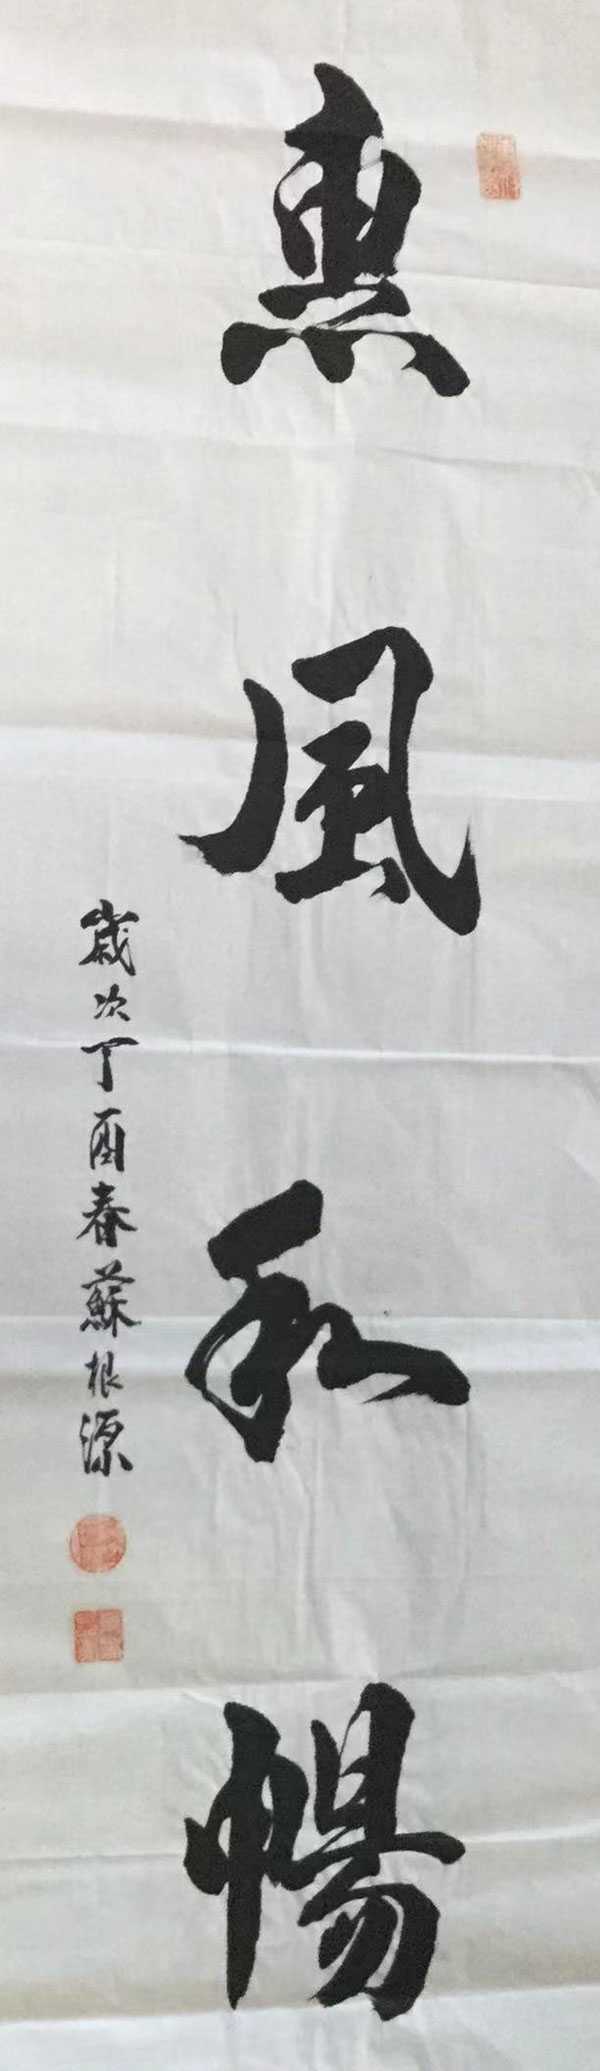 惠風和暢
歲次丁酉春蘇根源